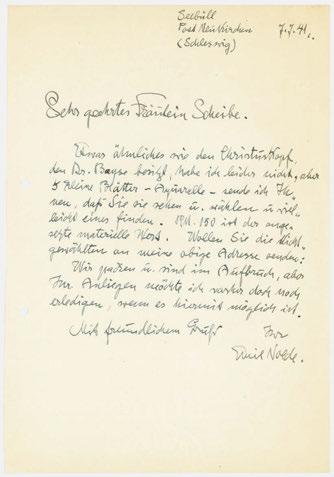 Seebüll
Post Neukirchen
(Schleswig)
7.7.41.
Sehr geehrtes Fräulein Scheibe.
Etwas ähnliches wie den Christuskopf,
den Dr. Bayse besitzt, habe ich leider nicht, aber
5 kleine Blätter - Aquarelle - sende ich Ih-
nen, daß Sie sie sehen u. wählen u. viel-
leicht eines finden. M. 150 ist der ange-
setzte materielle Wert. Wollen Sie die nicht-
gewählten an meine obige Adresse senden:
Wir packen u. sind im Aufbruch, aber
Ihr Anliegen möchte ich vorher doch noch
erledigen, wenn es hiermit möglich ist.
Mit freundlichem Gruß
Ihr
Emil Nolde.